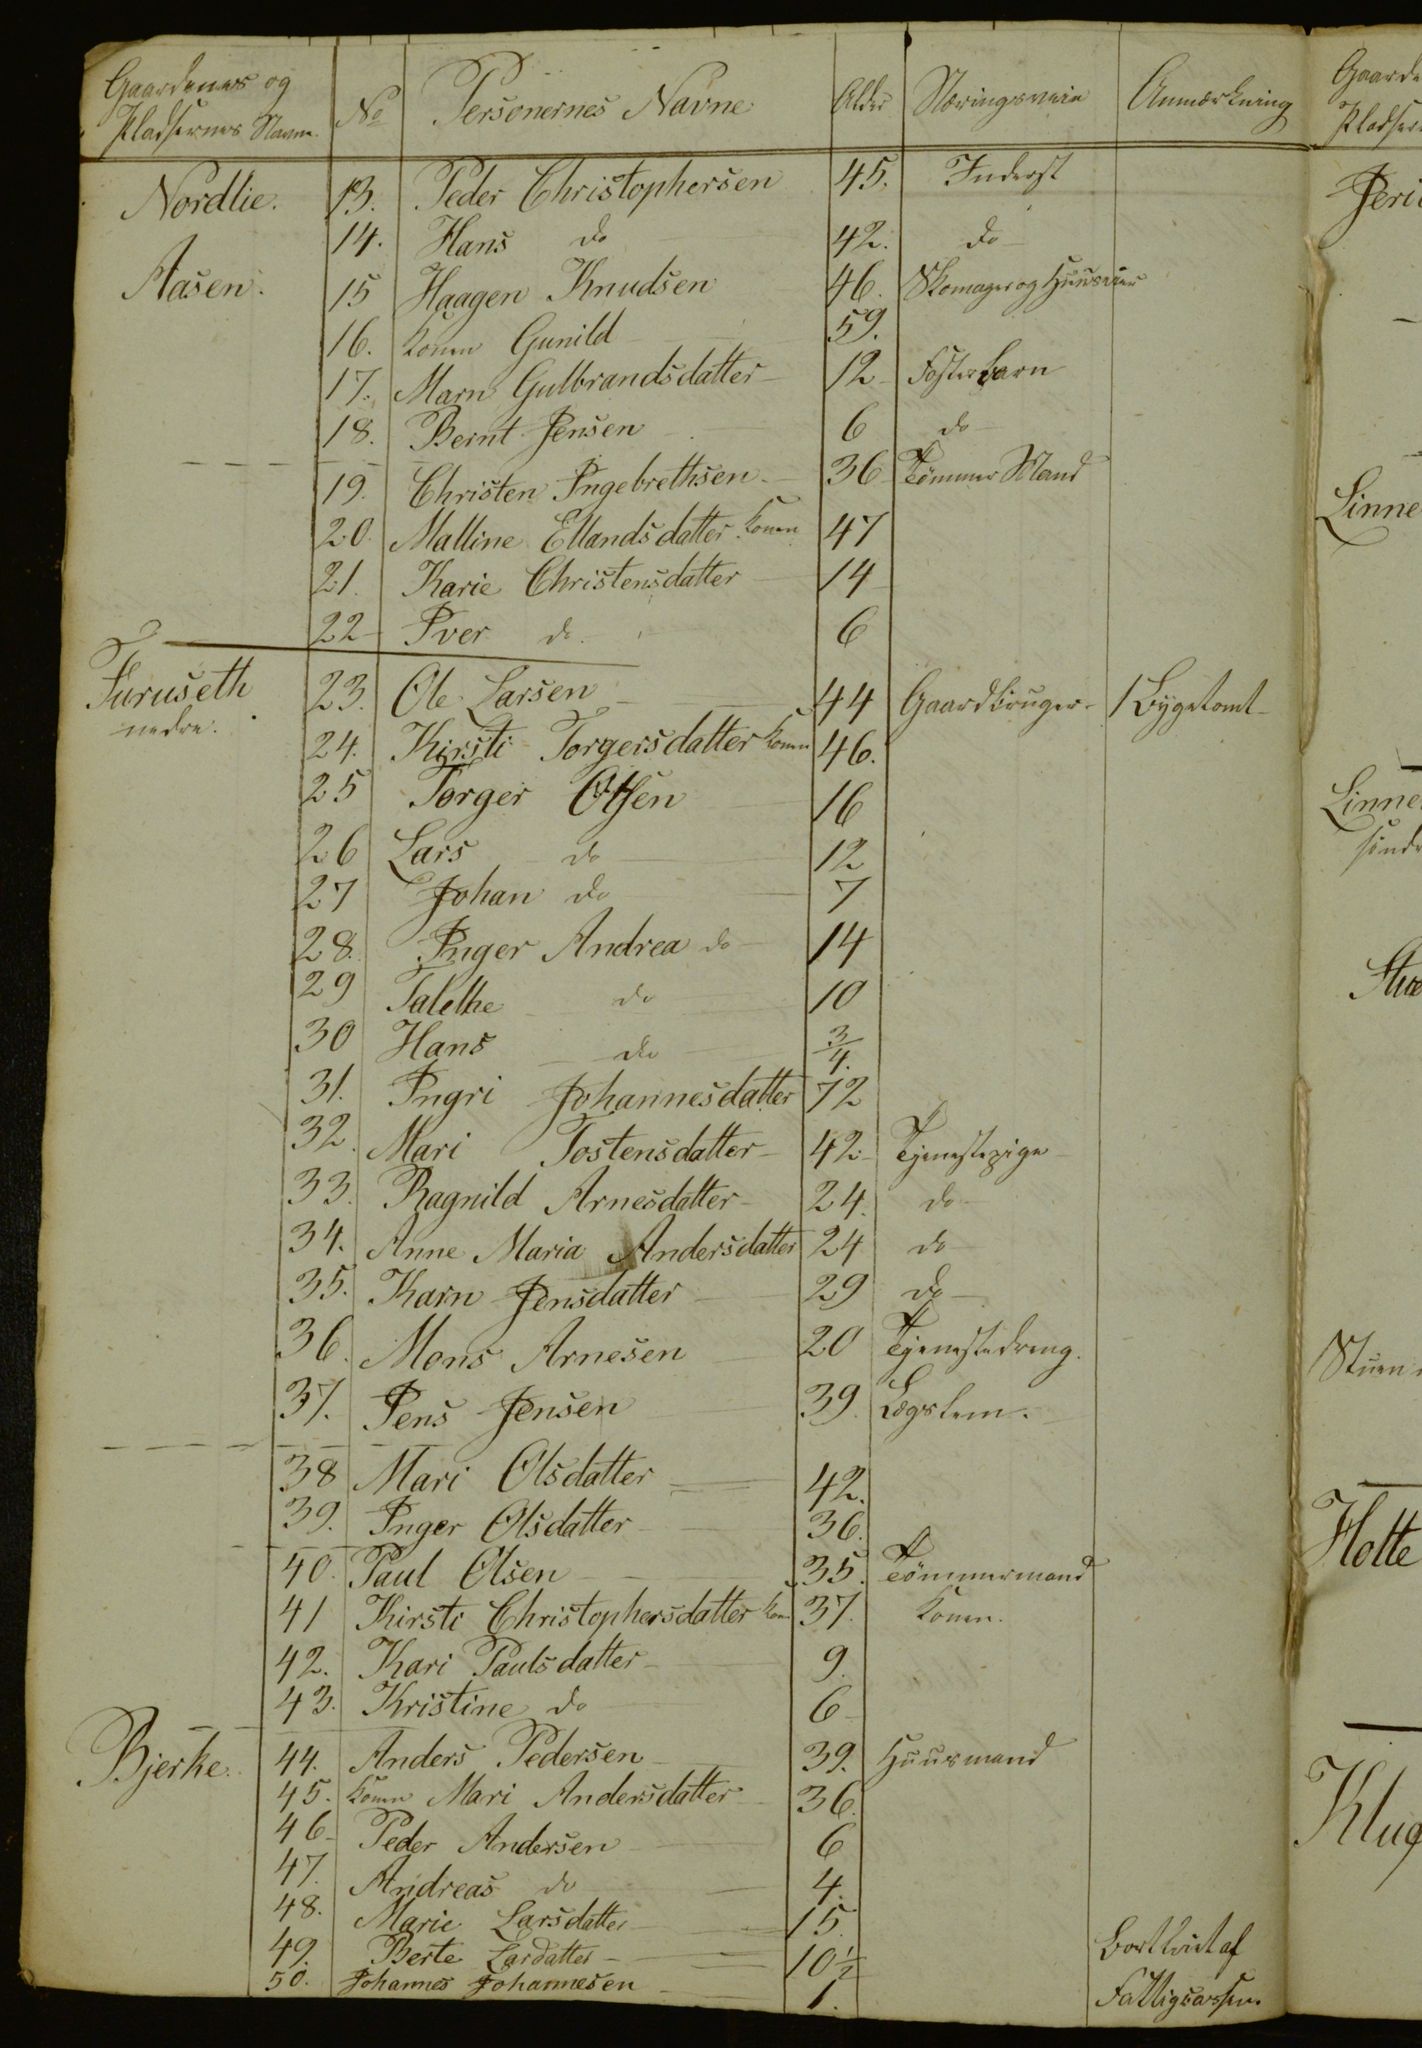 Gaardenes og Pladsernes Navne. No Personernes Navne Alder Næringsveie Anmærkning
Nordlie. 13. Peder Christophersen 45. Inderst
14. Hans do 42. do
Aasen. 15 Haagen Knudsen 46. Skomager og Huuseier
16. Konen Gunild 59.
17. Marn Gulbrandsdatter 12 Fosterbarn
18. Bernt Jensen 6 do
19. Christen Ingebrethsen 36 Tømmer Mand
20. Malline Ellandsdatter Konen 47
21. Karie Christensdatter 14
22 Iver do. 6
Furuseth nedre. 23. Ole Larsen 44 Gaardbruger 1 Bygetomt
24. Kirsti Torgersdatter Konen 46.
25 Torger Olsen 16
26 Lars do 12
27 Johan do 7
28. Inger Andrea do 14
29 Talethe do 10
30 Hans do 3/4.
31. Ingri Johannesdatter 72
32. Mari Tostensdatter 42. Tjenestepige
33. Ragnild Arnesdatter 24. do
34. Anne Maria Andersdatter 24 do
35. Karn Jensdatter 29 do
36. Mons Arnesen 20 Tjenestedreng.
37. Jens Jensen 39. Lægslem.
38 Mari Olsdatter 42.
39. Inger Olsdatter 36.
40. Paul Olsen 35. Tømmermand
41 Kirsti Christophersdatter Kon 37. Konen.
42. Kari Paulsdatter 9.
43. Kristine do 6
Bjerke. 44. Anders Pedersen 39. Huusmand
45. Konen Mari Andersdatter 36.
46. Peder Andersen 6
47. Andreas do 4.
48. Marie Larsdatter 15.
49. Berte Lardatter 10 1/2 af
50. Johannes Johannesen 1. Fattigcassen
Gaarde
Pladser
Linne
Linne
Stuen
Hotte
Klug